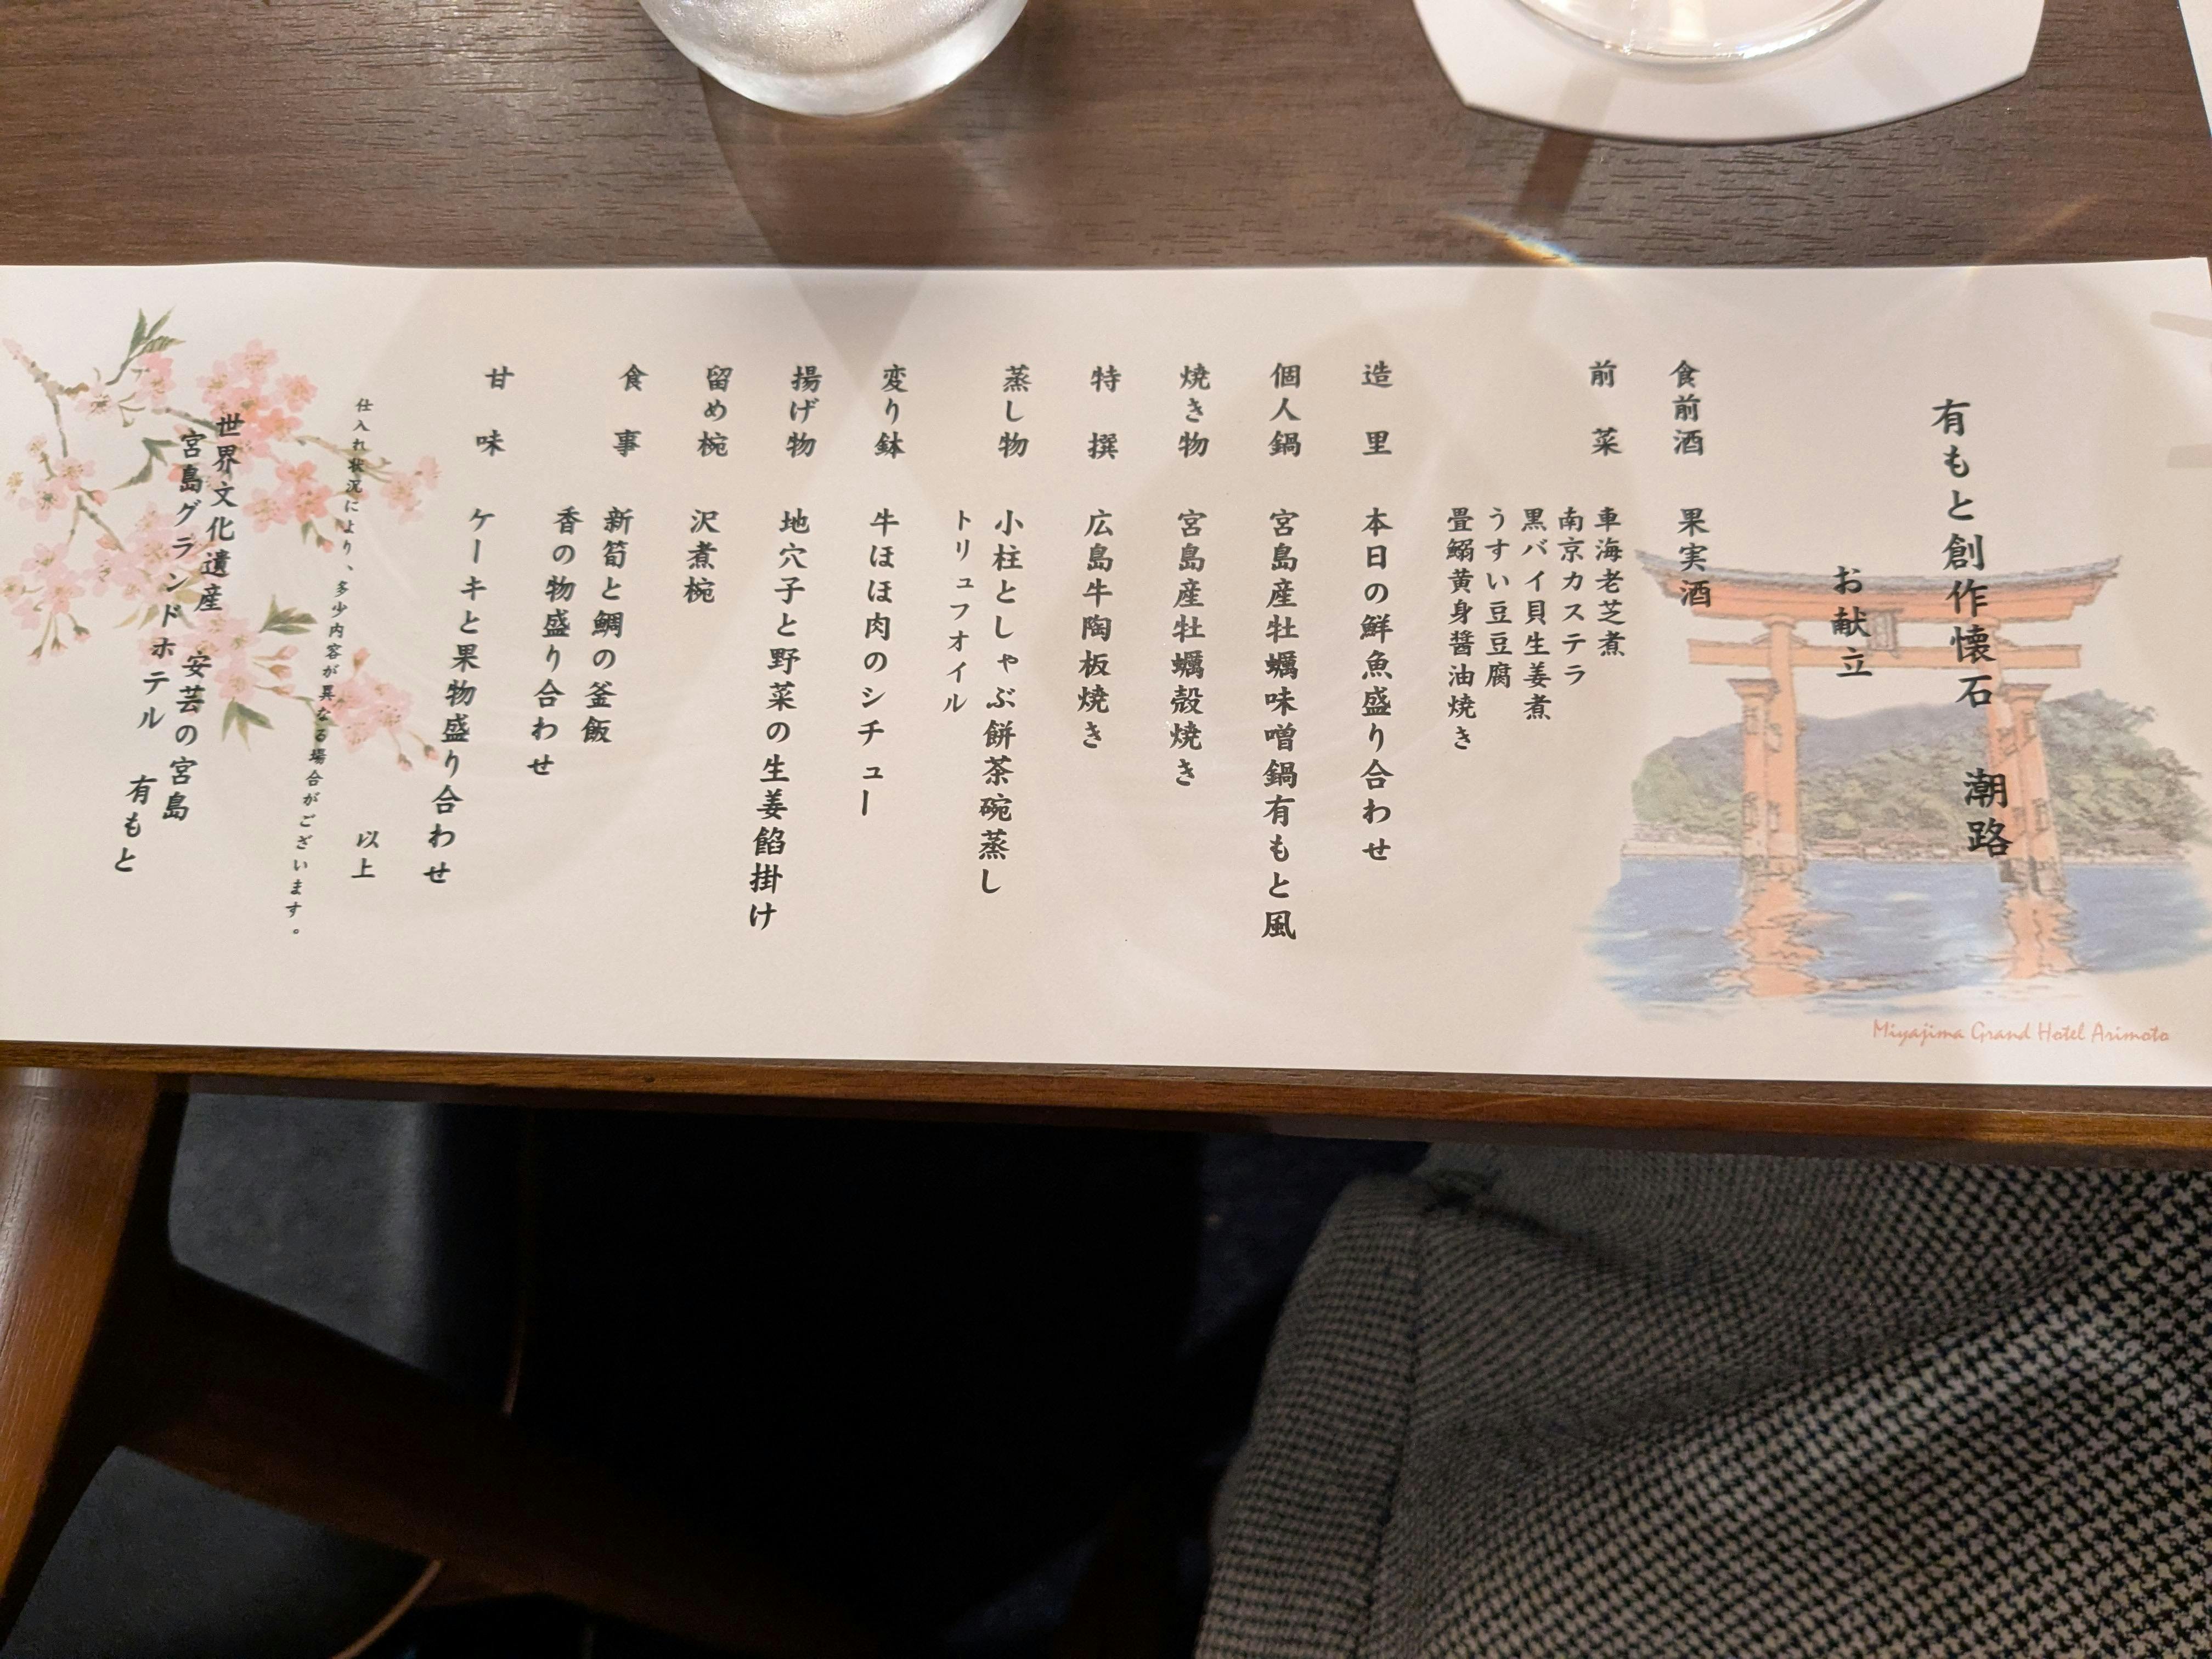 有もと創作懐石 潮路
お献立
食前酒 果実酒
前菜 車海老芝煮
南京カステラ
黒バイ貝生姜煮
うすい豆豆腐
畳鰯黄身醤油焼き
造里 本日の鮮魚盛り合わせ
個人鍋 宮島産牡蠣味噌鍋有もと風
焼き物 宮島産牡蠣殻焼き
特撰 広島牛陶板焼き
蒸し物 小柱としゃぶ餅茶碗蒸し
トリュフオイル
変り鉢 牛ほほ肉のシチュー
揚げ物 地穴子と野菜の生姜餡掛け
留め椀 沢煮椀
食事 新筍と鯛の釜飯
香の物盛り合わせ
甘味 ケーキと果物盛り合わせ
以上
仕入れ状況により、多少内容が異なる場合がございます。
世界文化遺産 安芸の宮島
宮島グランドホテル 有もと
Miyajima Grand Hotel Arimoto